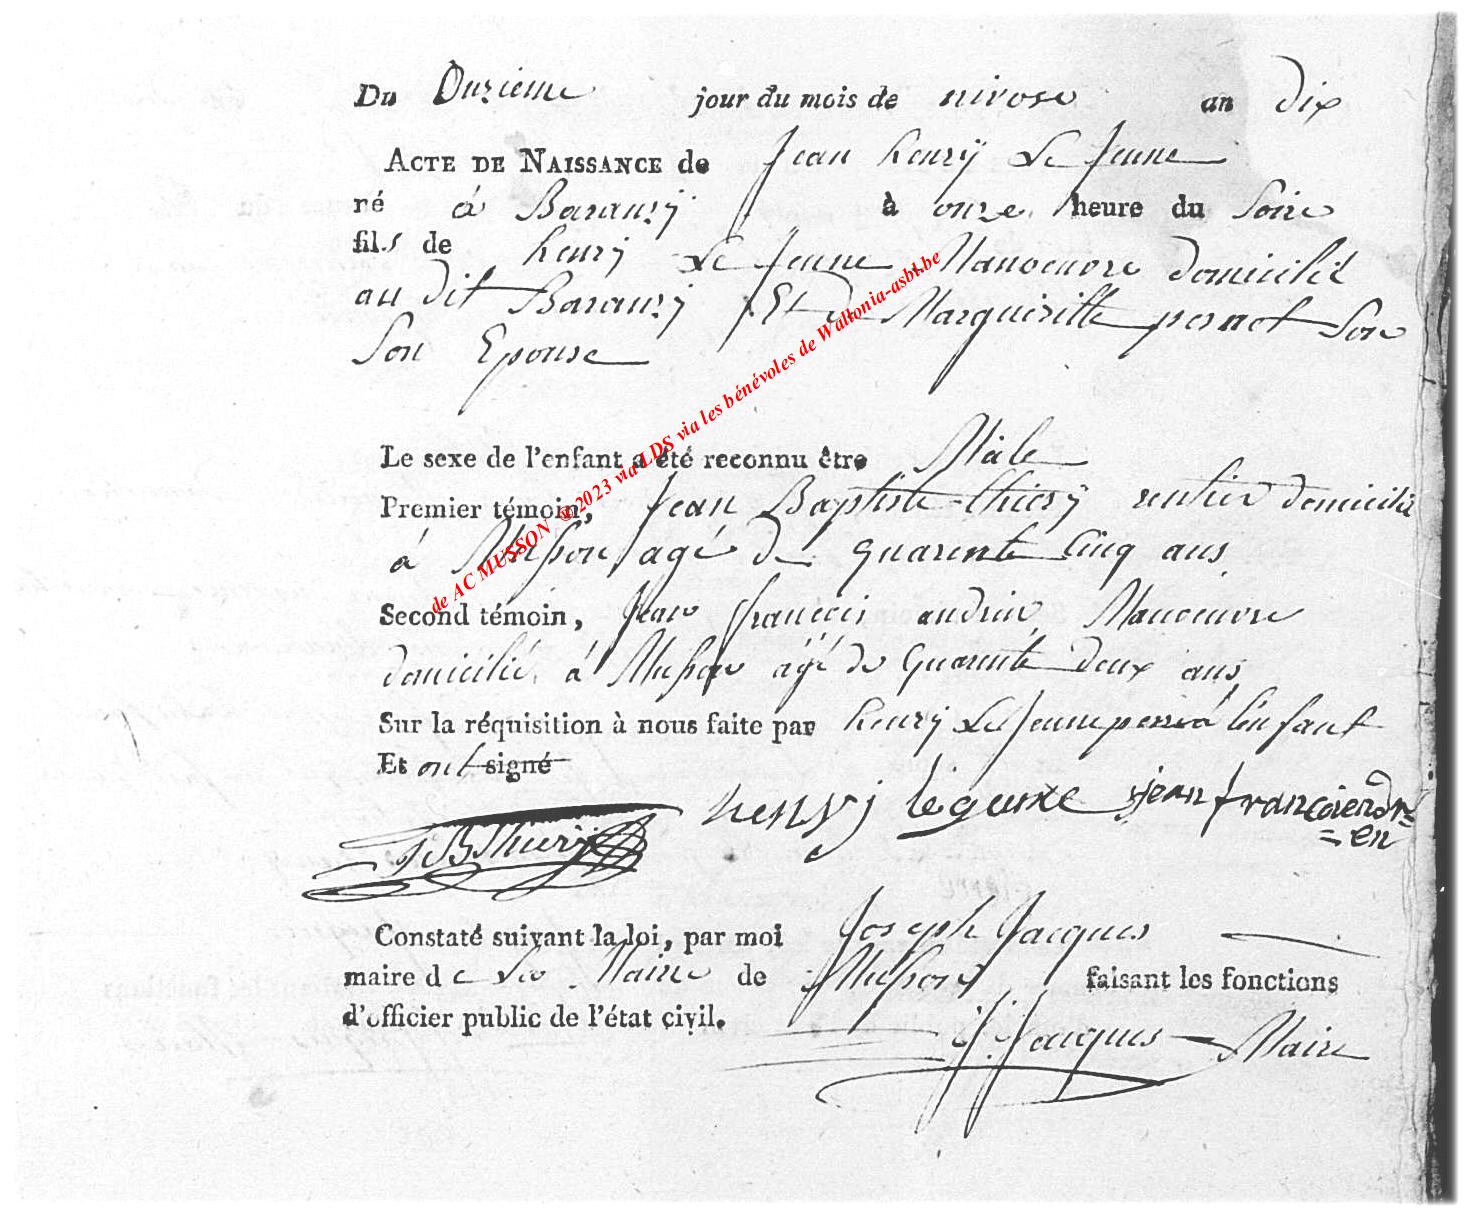 Du Onzieme jour du mois de nivose an dix
ACTE DE NAISSANCE de Jean henrÿ Le Jeune
né à Baranzÿ à onze heure du Soire
fils de henrÿ Le Jeune Manoeuvre domicilié
au dit Baranzÿ Et de Marguiritte pernot Son
Son Epouse
Le sexe de l'enfant a été reconnu être Mâle
Premier témoin, Jean Baptiste thierÿ rentier domicilié
à Musson agé de quarente Cinq ans
Second témoin, Jean françois andrin Manoeuvre
domicilié à Musson agé de quarente deux ans
Sur la réquisition à nous faite par henrÿ Le Jeune perre à L'enfant
Et ont signé
henrÿ legunne jean françoiendr=
=en
J B Thierÿ
Constaté suivant la loi, par moi Joseph Jacques
maire de La Mairie de Musson faisant les fonctions
d'officier public de l'état civil.
J. Jacques Maire
de AC MUSSON ®2023 via LDS via les bénévoles de Wallonia-asbl.be